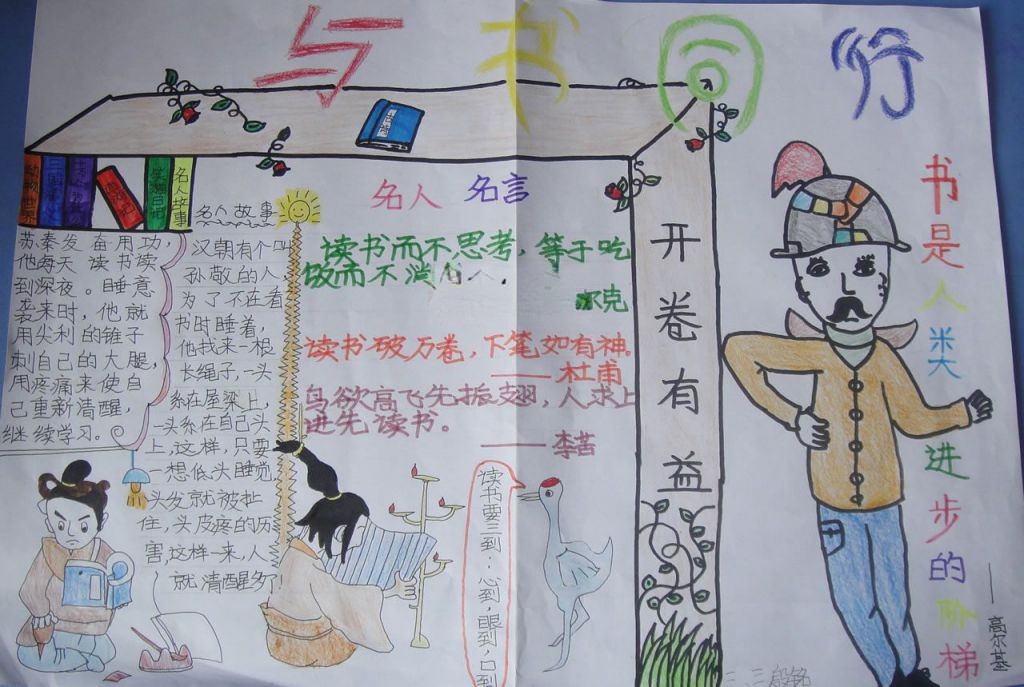 与书同行
动物世界
名人故事
名人故事
苏秦发奋用功，
他每天读书读
到深夜。睡意
袭来时，他就
用尖利的锥子
刺自己的大腿，
用疼痛来使自
己重新清醒，
继续学习。
汉朝有个叫
孙敬的人，
为了不在看
书时睡着，
他找来一根
长绳子，一头
系在屋梁上，
一头系在自己头
上，这样，只要
一想低头睡觉，
头发就被扯
住，头皮疼的历
害，这样一来，人
就清醒多了！
名人名言
读书而不思考，等于吃
饭而不消
克
读书破万卷，下笔如有神。
——杜甫
鸟欲高飞先振翅，人求上
进先读书。
——李苦
读书要三到：心到，眼到，口到
开卷有益
书是人类进步的阶梯
——高尔基